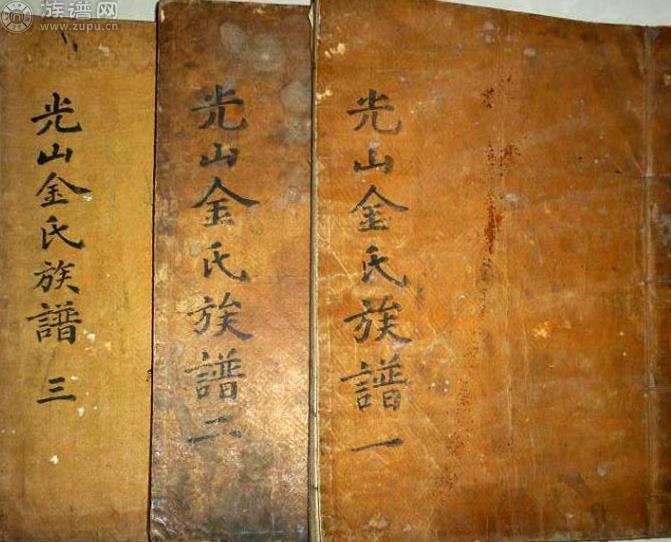 族谱网
www.zupu.cn
光山金氏族譜一
光山金氏族譜二
光山金氏族譜三